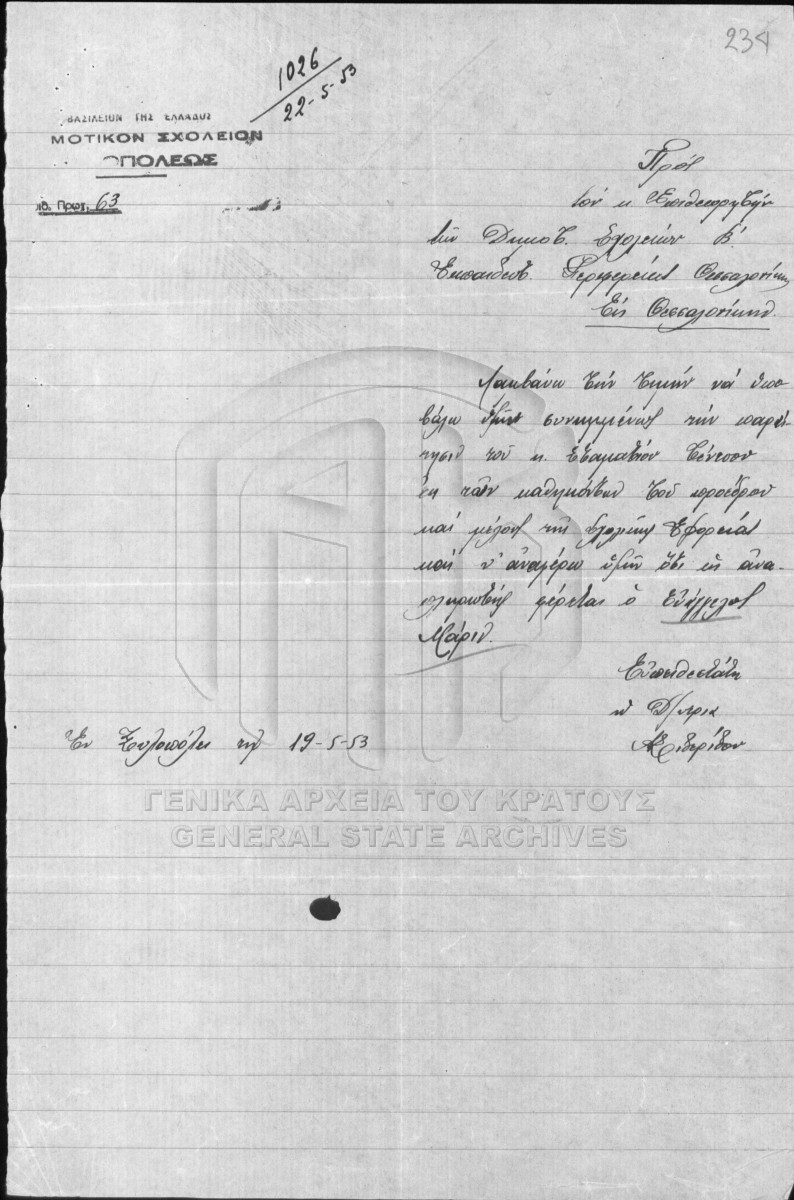 234
1026
22-5-53
ΒΑΣΙΛΕΙΟΝ ΤΗΣ ΕΛΛΑΔΟΣ
ΜΟΤΙΚΟΝ ΣΧΟΛΕΙΟΝ
ΟΠΟΛΕΩΣ
ιθ. Πρωτ. 63
Πρός
τόν κ Ἐπιθεωρητήν
τῶν Δημοτ. Σχολείων β΄
Ἐκπαιδευτ. Περιφερείας Θεσσαλονίκης
Εἰς Θεσσαλονίκην.
Λαμβάνω τήν τιμήν νά ὑπο
βάλω ὑμῖν συνημμένως τήν παραί
τησιν τοῦ κ.
ἐκ τῶν καθηκόντων τοῦ προέδρου
καί μέλους τῆς Σχολικῆς Ἐφορείας
καί ν' ἀναφέρω ὑμῖν ὅτι ὡς ἀνα-
πληρωτής φέρεται ὁ Εὐάγγελος
Μάριν.
Εὐπειθεστάτη
ἡ Δ/τρια
Ἐν Ξυλοπόλει τῇ 19-5-53
ΓΕΝΙΚΑ ΑΡΧΕΙΑ ΤΟΥ ΚΡΑΤΟΥΣ
GENERAL STATE ARCHIVES